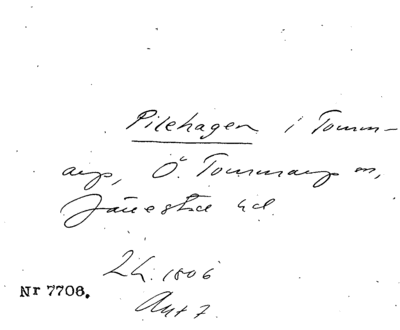 Pilehagen i Tomm-
arp, Ö. Tommarp sn,
Järrestad hd.
Lh. 1806
Nr 7708.
Akt 7.